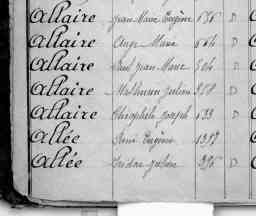 Allaire Jean Marie Eugène D
Allaire Ange Marie 664 D
Allaire Jean Marie 504 D
Allaire Mathurin Julien 858 D
Allaire Théophile Joseph 633 D
Allée René Eugène 1377 D
Allée Isidor Julien D